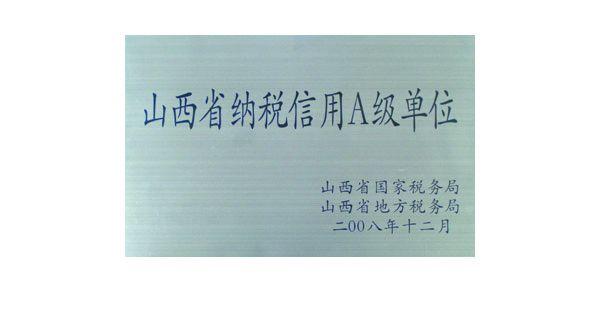 山西省纳税信用A级单位
山西省国家税务局
山西省地方税务局
二00八年十二月